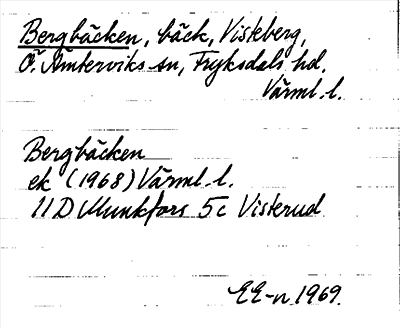 Bergbäcken, bäck, Visteberg,
Ö. Ämterviks sn, Fryksdals hd.
Värml. l.
Bergbäcken
ek (1968) Värml. l.
11D Munkfors 5c Visterud
EE-n 1969.